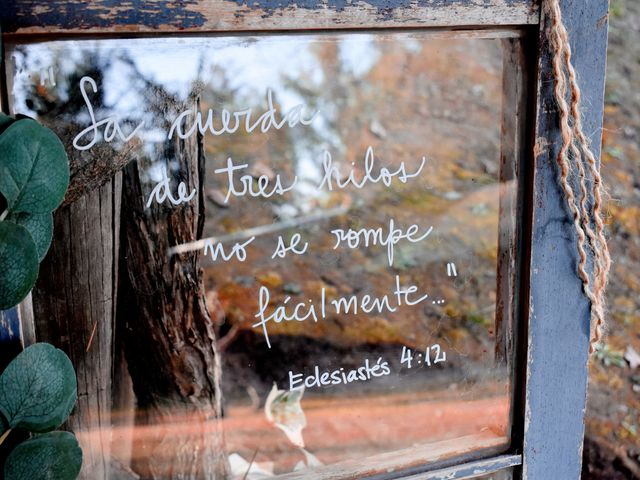 "La cuerda
de tres hilos
no se rompe
fácilmente..."
Eclesiastés 4:12